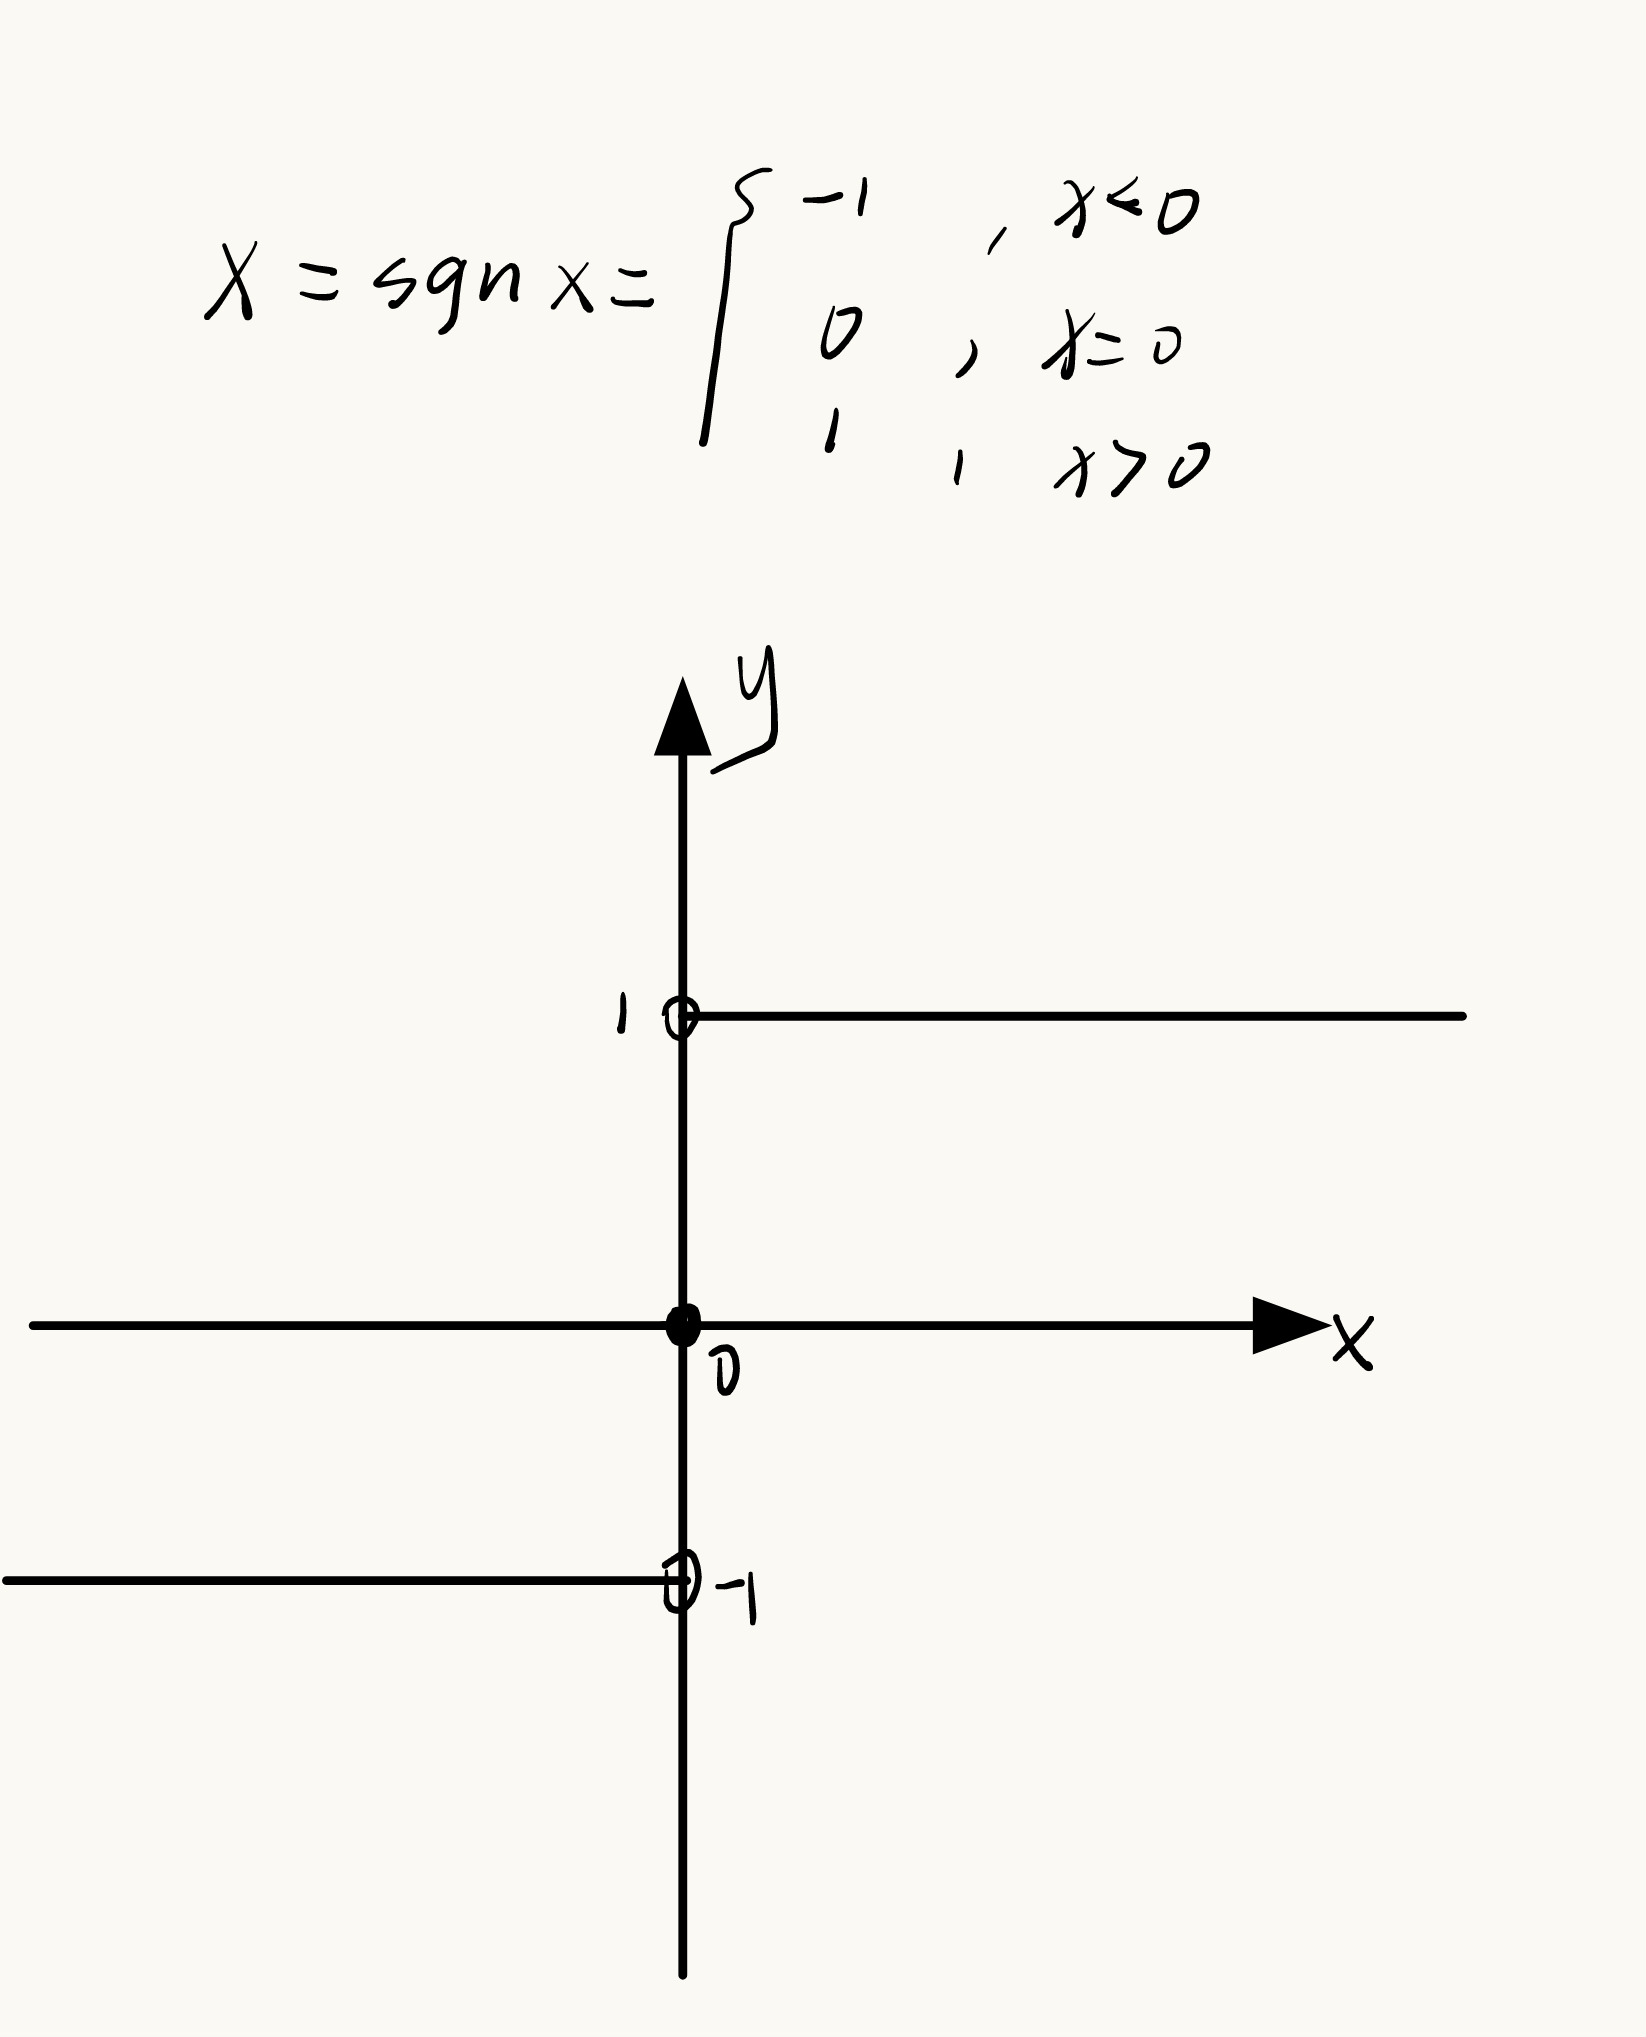 X = sgn x = { -1 , x < 0
0 , x = 0
1 , x > 0
y
1
x
0
-1